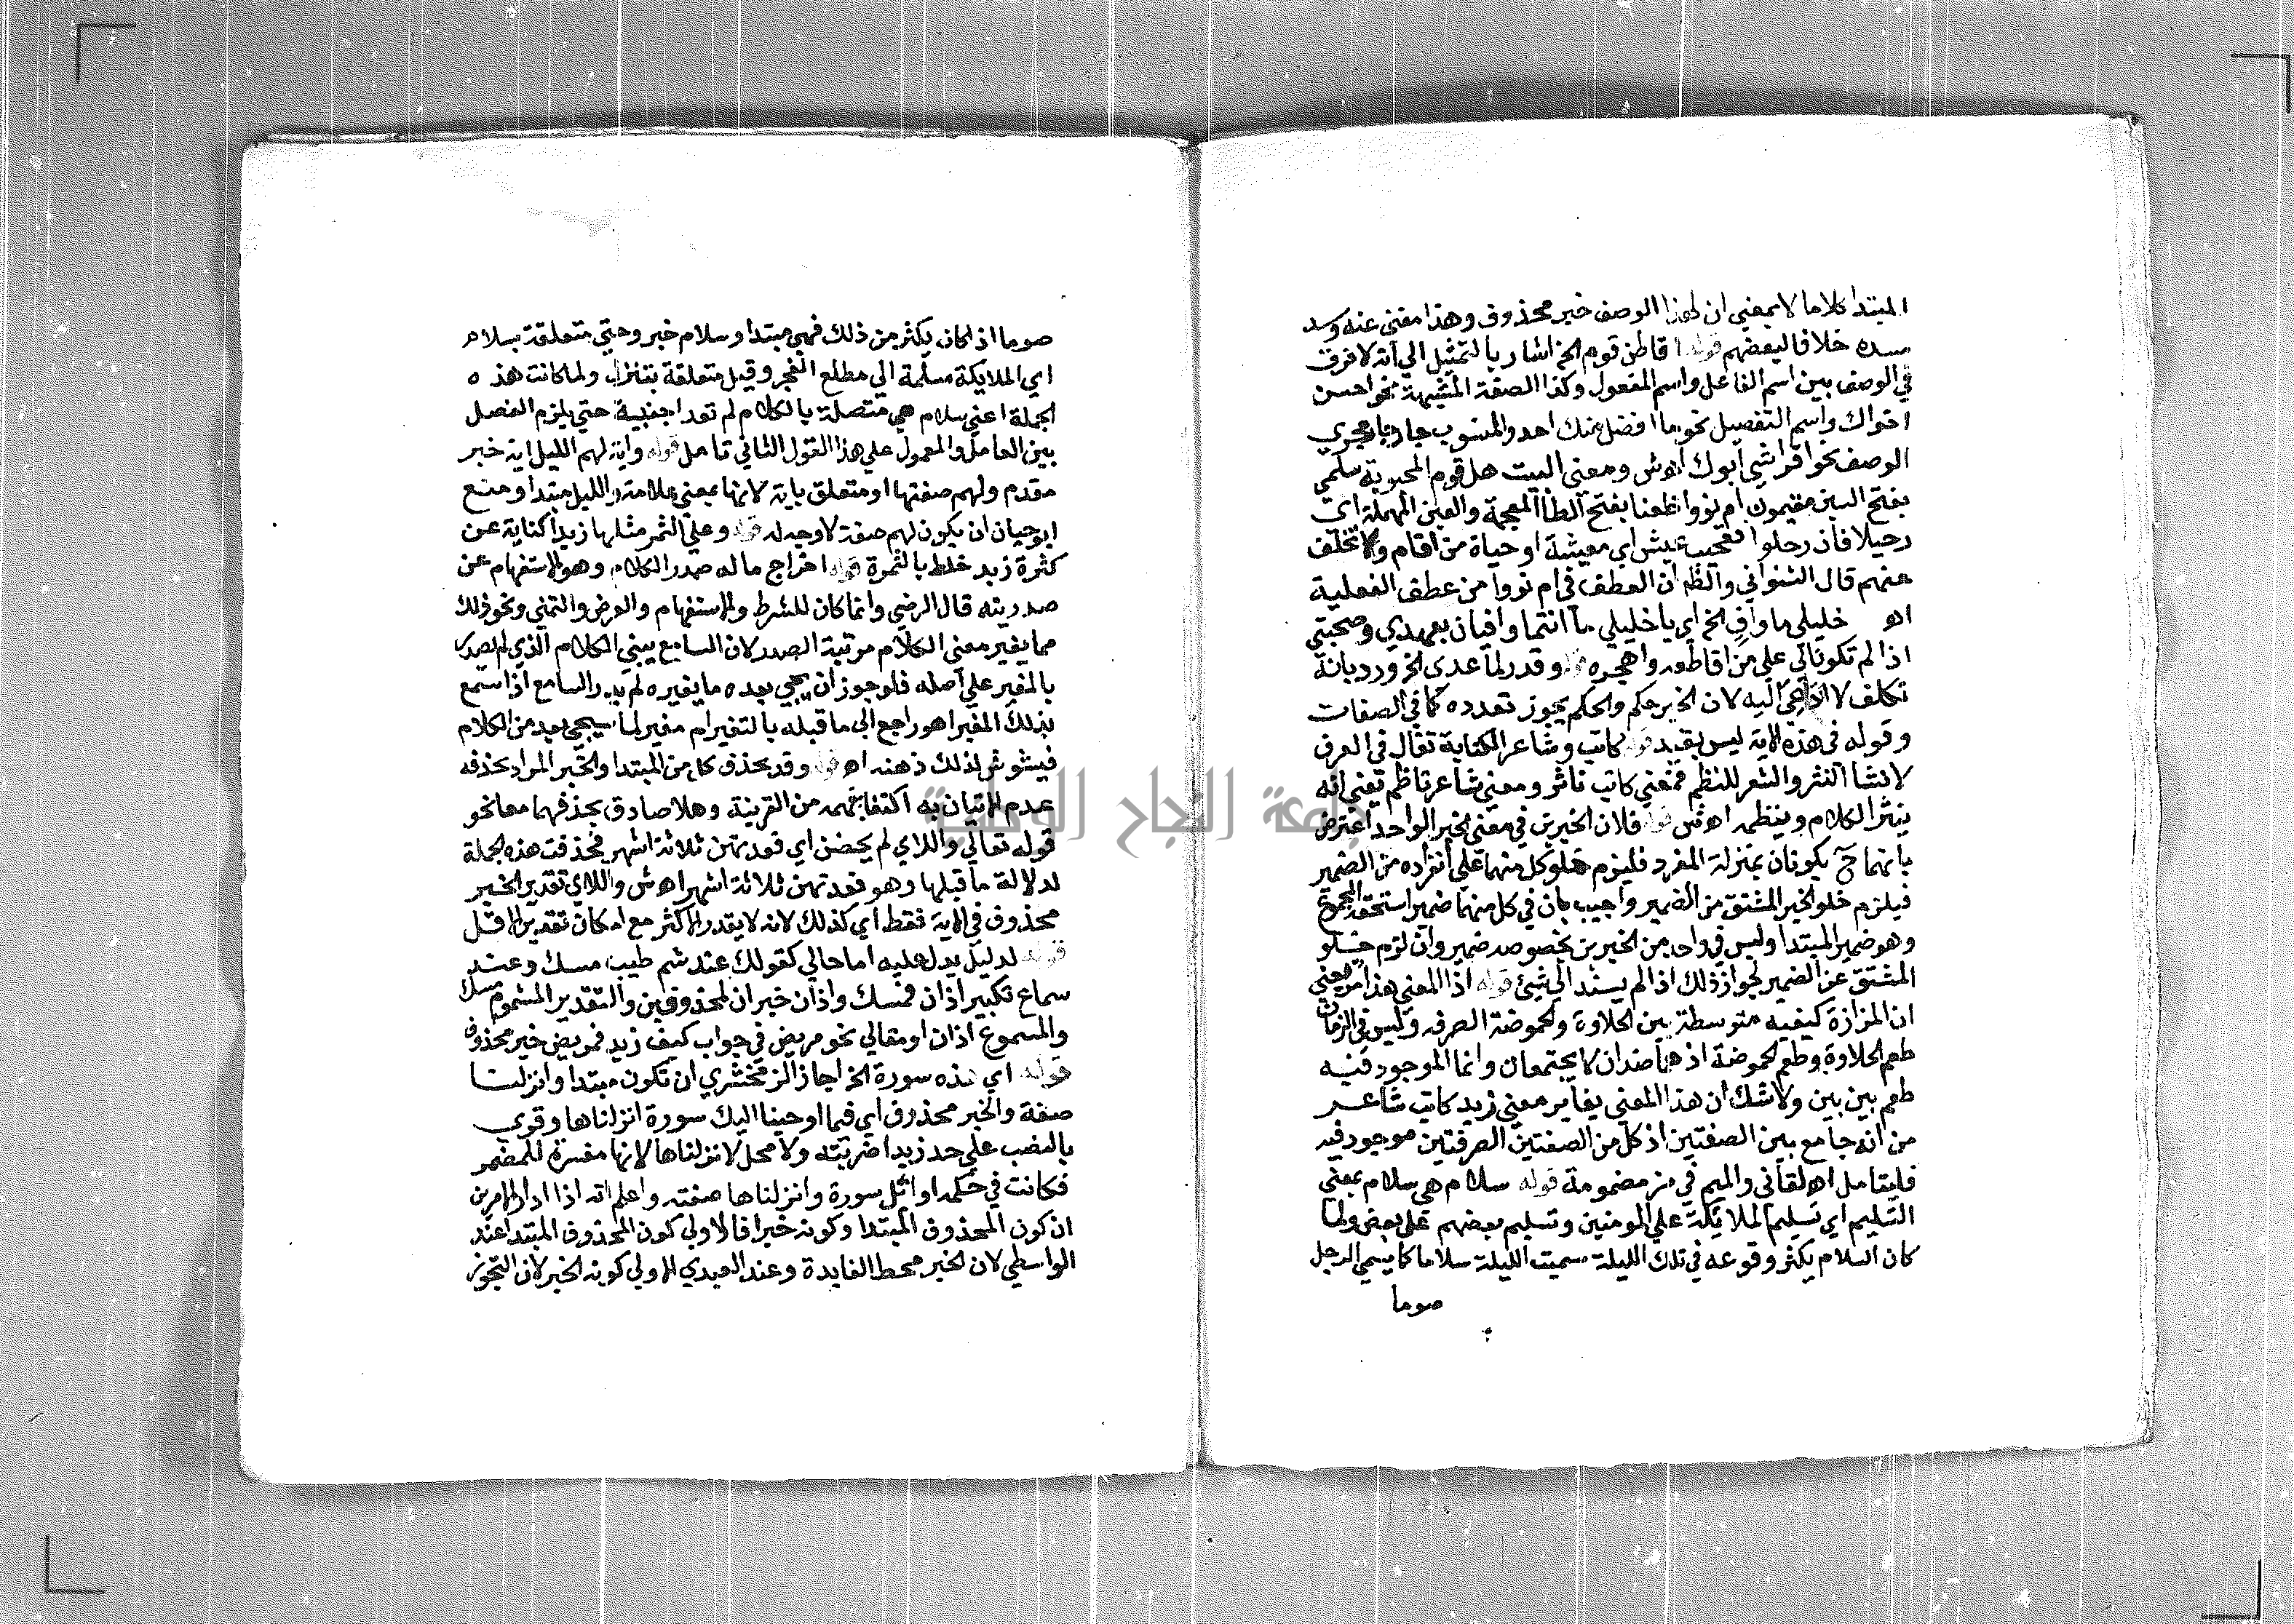 المبتدا كلاما لا بمعني ان لهذا الوصف خبر محذوف وهذا مغني عنه وسد
مسده خلافا لبعضهم قوله اقاطن قوم الخ اشار بالتمثيل الي انه لا فرق
في الوصف بين اسم الفاعل واسم المفعول وكذا الصفة المشبهة نحو احسن
اخواك واسم التفضيل نحو ما افضل منك احد والمنسوب جار مجري
الوصف نحو اقراشي ابوك اهش ومعني البيت هل قوم المحبوبة سلمي
بفتح السين مقيمون ام نووا ظعنا بفتح الظا المعجمة والعين المهملة اي
رحيلا فان رحلوا فعجيب عيش اي معيشة او حياة من اقام ولا تخلف
عنهم قال الشنواني والظ ان العطف في ام نووا من عطف الفعلية
اه خليلي ما واف الخ اي يا خليلي ما انتما وافيان بعهدي وصحبتي
اذا لم تكونا لي علي من اقاطعه واهجره قوله وقدر لما عدي الخ ورد بانه
تكلف لا داعي اليه لان الخبر حكم والحكم يجوز تعدده كما في الصفات
وقوله في هذه الاية ليس بقيد قوله كاتب وشاعر الكتابة تقال في العرف
لانشا النثر والشعر للنظم فمعني كاتب ناثر ومعني شاعر ناظم يعني انه
ينثر الكلام وينظمه اهش قوله فلان الخبرين في معني الخبر الواحد اعترض
بانهما ح يكونان بمنزلة المفرد فيلزم خلو كل منهما علي انفراده من الضمير
فيلزم خلو الخبر المشتق من الضمير واجيب بان في كل منهما ضمير استحقه المجموع
وهو ضمير المبتدا وليس في واحد من الخبرين بخصوصه ضمير وان لزم خلو
المشتق عن الضمير لجواز ذلك اذا لم يسند الي شيئ قوله اذ المعني هذا مز يعني
ان المزازة كيفيه متوسطة بين الحلاوة والحموضة الصرفه وليس في الزمان
طعم الحلاوة وطعم الحموضة اذ هما ضدان لا يجتمعان وانما الموجود فيه
طعم بين بين ولا شك ان هذا المعني يغاير معني زيد كاتب شاعر
من انه جامع بين الصفتين اذ كل من الصفتين الصرفتين موجود فيه
فليتامل اه لقاني والميم في مز مضمومة قوله سلام هي سلام بمعني
التسليم اي تسليم الملائكة علي المومنين وتسليم بعضهم علي بعض ولما
كان السلام يكثر وقوعه في تلك الليلة سميت الليلة سلاما كما يسمي الرجل
صوما
صوما اذا كان يكثر من ذلك فهي مبتدا وسلام خبر وحتي متعلقة بسلام
اي الملايكة مسلمة الي مطلع الفجر وقيل متعلقة بتنزل ولما كانت هذه
الجملة اعني سلام هي متصلة بالكلام لم تعد اجنبية حتي يلزم الفصل
بين العامل والمعمول علي هذا القول الثاني تامل قوله واية لهم الليل اية خبر
مقدم ولهم صفتها او متعلق باية لانها بمعني علامة والليل مبتدا ومنع
ابو حيان ان يكون لهم صفة لا وجه له قوله وعلي التمر مثلها زيدا كناية عن
كثرة زبد خلط بالثمرة قوله اخراج ما له صدر الكلام وهو الاستفهام عن
صدريته قال الرضي وانما كان للشرط والاستفهام والعرض والتمني ونحو ذلك
مما يغير معني الكلام مرتبة الصدر لان السامع يبني الكلام الذي لم يصدر
بالمغير علي اصله فلو جوز ان يجي بعده ما يغيره لم يدر السامع اذا سمع
بذلك المغير اهو راجع الي ما قبله بالتغير ام مغير لما سيجي بعد من الكلام
فيشوش لذلك ذهنه اه قوله وقد يحذف كل من المبتدا والخبر المراد بحذفه
عدم الاتيان به اكتفا بفهمه من القرينة وهلا صادق بحذفهما معا نحو
قوله تعالي واللاي لم يحضن اي فعدتهن ثلاثة اشهر فحذفت هذه الجملة
لدلالة ما قبلها وهو فعدتهن ثلاثة اشهر اهش واللاي تقدير الخبر
محذوف في الاية فقط اي كذلك لانه لا يقدر الاكثر مع امكان تقدير الاقل
قوله لدليل يدل عليه اما حالي كقولك عند شم طيب مسك وعند
سماع تكبير اذان فمسك واذان خبران لمحذوفين والتقدير المشموم مسك
والمسموع اذان او مقالي نحو مريض في جواب كيف زيد فمريض خبر محذوف
قوله اي هذه سورة الخ اجاز الزمخشري ان تكون مبتدا وانزلنا
صفة والخبر محذوف اي فيما اوحينا اليك سورة انزلناها وقري
بالنصب علي حد زيدا ضربته ولا محل لانزلناها لانها مفسرة للمضمر
فكانت في حكمه او اتل سورة وانزلناها صفته واعلم انه اذا دار الامر بين
ان كون المحذوف المبتدا وكونه خبرا فالاولي كون المحذوف المبتدا عند
الواسطي لان الخبر محط الفايدة وعند العبدي الاولي كونه الخبر لان التجوز
جامعة النجاح الوطنية